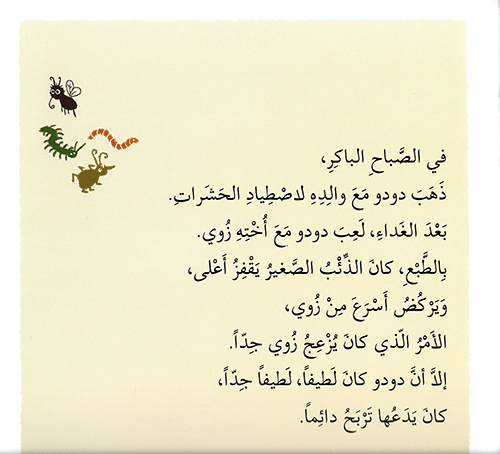 في الصَّباحِ الباكِرِ،
ذَهَبَ دودو مَعَ والِدِهِ لاصْطِيادِ الحَشَراتِ.
بَعْدَ الغَداءِ، لَعِبَ دودو مَعَ أُخْتِهِ زُوي.
بِالطَّبْعِ، كانَ الذِّئْبُ الصَّغيرُ يَقْفِزُ أَعْلى،
وَيَرْكُضُ أَسْرَعَ مِنْ زُوي،
الأَمْرُ الّذي كانَ يُزْعِجُ زُوي جِدّاً.
إلاَّ أنَّ دودو كانَ لَطيفاً، لَطيفاً جِدّاً،
كانَ يَدَعُها تَرْبَحُ دائِماً.